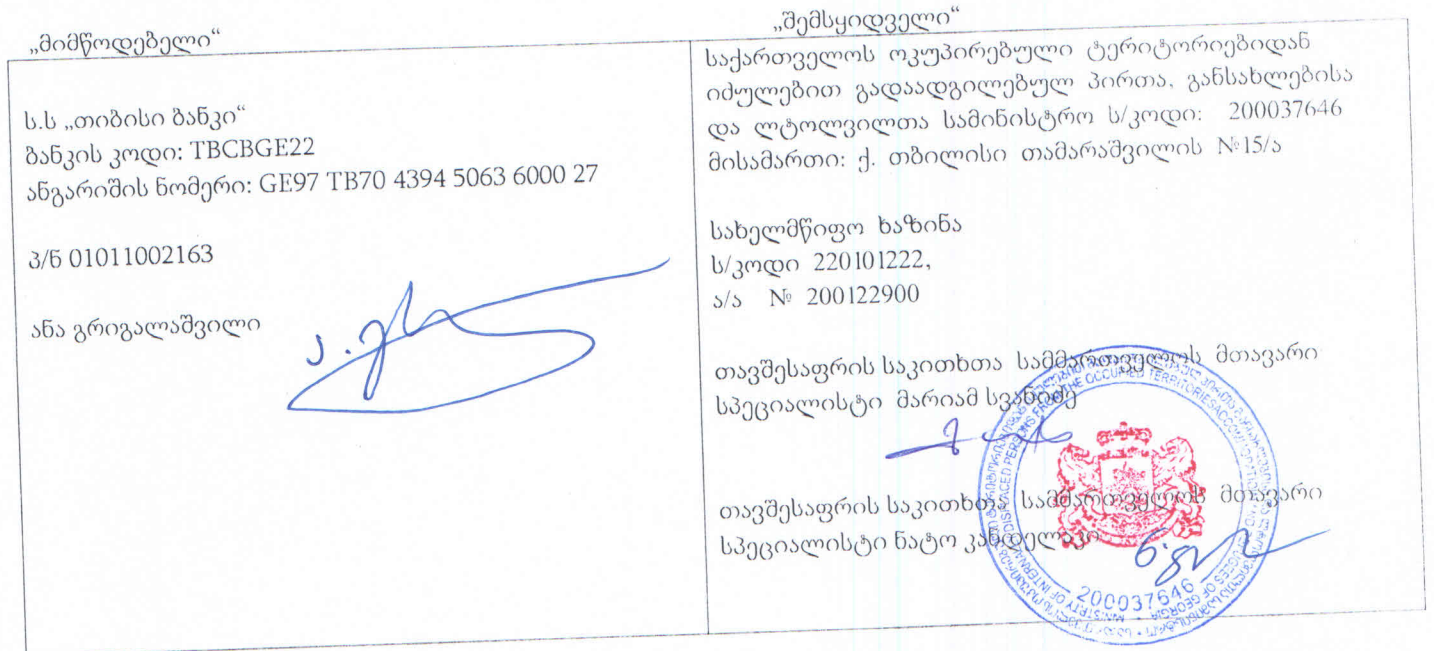 „მიმწოდებელი“
ს.ს „თიბისი ბანკი“
ბანკის კოდი: TBCBGE22
ანგარიშის ნომერი: GE97 TB70 4394 5063 6000 27
პ/ნ 01011002163
ანა გრიგალაშვილი
„შემსყიდველი“
საქართველოს ოკუპირებული ტერიტორიებიდან
იძულებით გადაადგილებულ პირთა, განსახლებისა
და ლტოლვილთა სამინისტრო ს/კოდი: 200037646
მისამართი: ქ. თბილისი თამარაშვილის №15/ა
სახელმწიფო ხაზინა
ს/კოდი 220101222,
ა/ა № 200122900
თავშესაფრის საკითხთა სამმართველოს მთავარი
სპეციალისტი მარიამ სვანიძე
თავშესაფრის საკითხთა სამმართველოს მთავარი
სპეციალისტი ნატო კანდელაკი
200037646